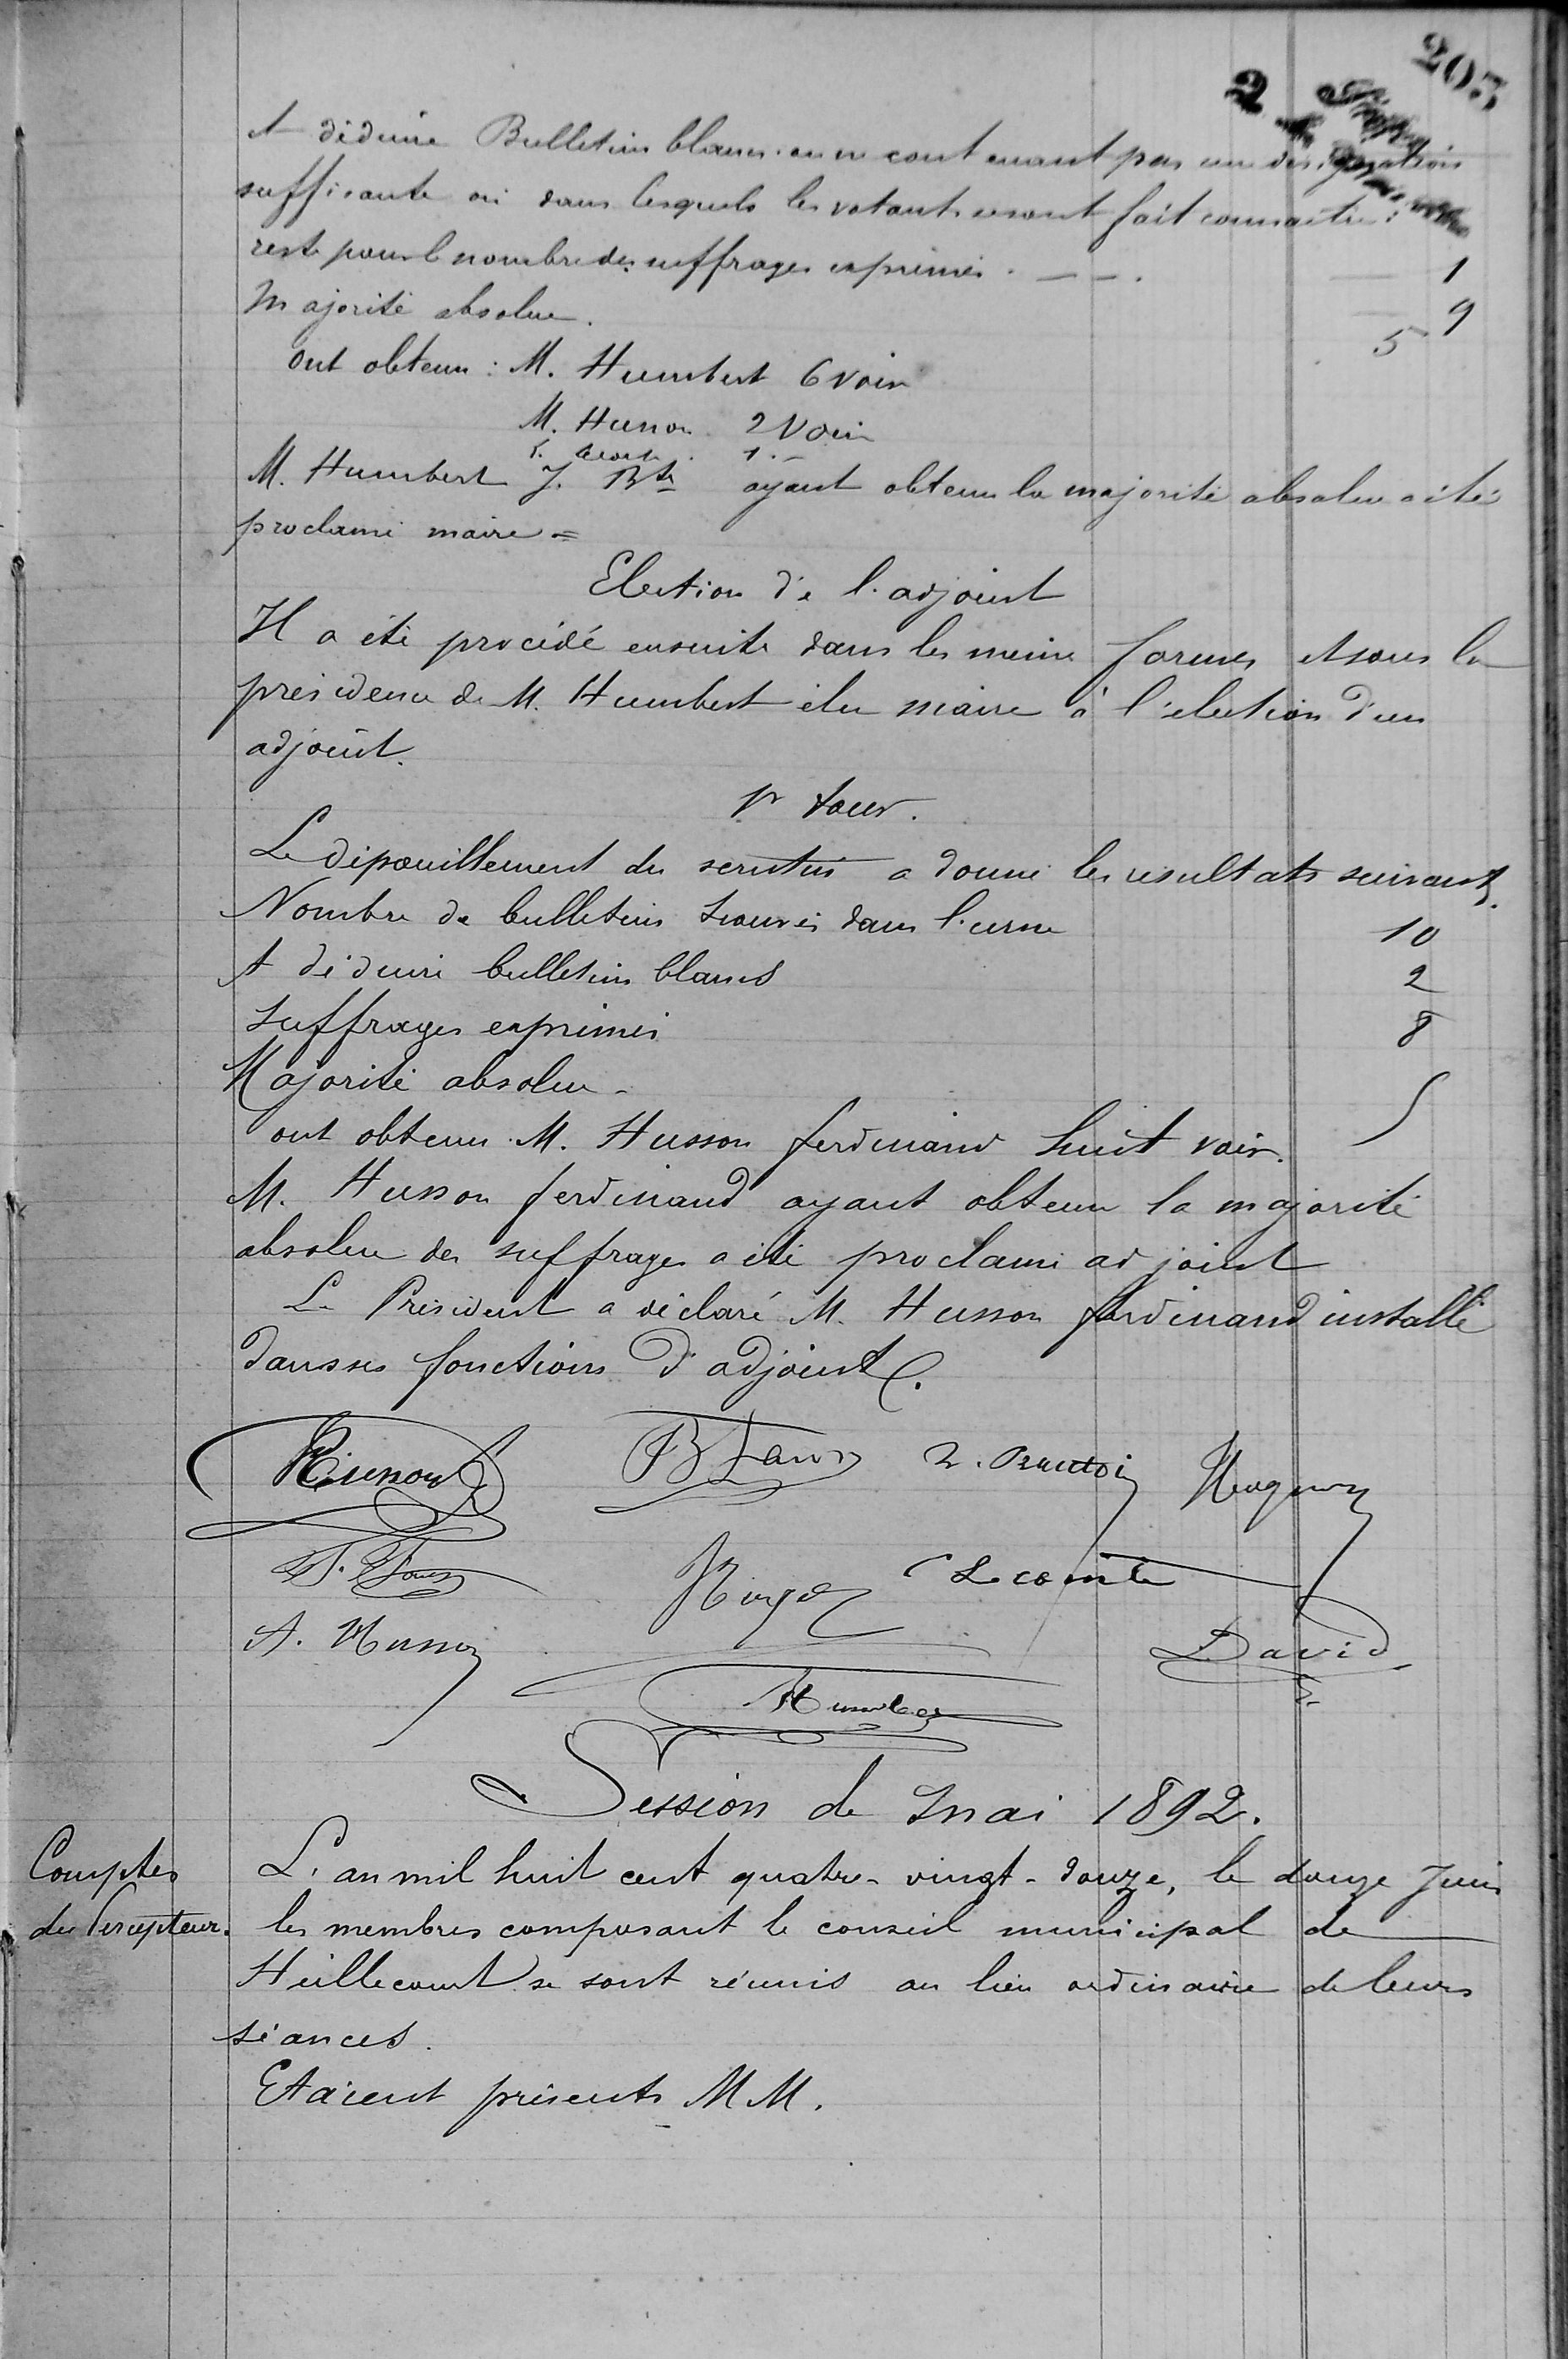 203
A déduire Bulletins blancs ou ne contenant pas une désignation
suffisante ou dans lesquels les votants se sont fait connaître :
reste pour le nombre des suffrages exprimés . — — . 1
Majorité absolue . 9
5
Ont obtenu : M. Humbert 6 voix
M. Husson 2 voix
1. —
M. Humbert J. Bte ayant obtenu la majorité absolue a été
proclamé maire =
Election de l'adjoint
Il a été procédé ensuite dans les même formes et sous la
présidence de M. Humbert élu maire à l'élection d'un
adjoint.
1r tour.
Le dépouillement du scrutin a donné les résultats suivants.
Nombre de bulletins trouvés dans l'urne 10
A déduire bulletins blancs 2
Suffrages exprimés 8
Majorité absolue - 5
ont obtenu M. Husson ferdinand huit voix.
M. Husson ferdinand ayant obtenu la majorité
absolue des suffrages a été proclamé adjoint
Le Président a déclaré M. Husson ferdinand installé
dans ses fonctions d'adjoint.
Husson
Lecomte
A. Husson
David
Humbert
Session de Mai 1892.
Comptes
du Percepteur.
L'an mil huit cent quatre-vingt-douze, le douze Juin
les membres composant le conseil municipal de
Heillecourt se sont réunis au lieu ordinaire de leurs
séances.
Etaient présents MM.